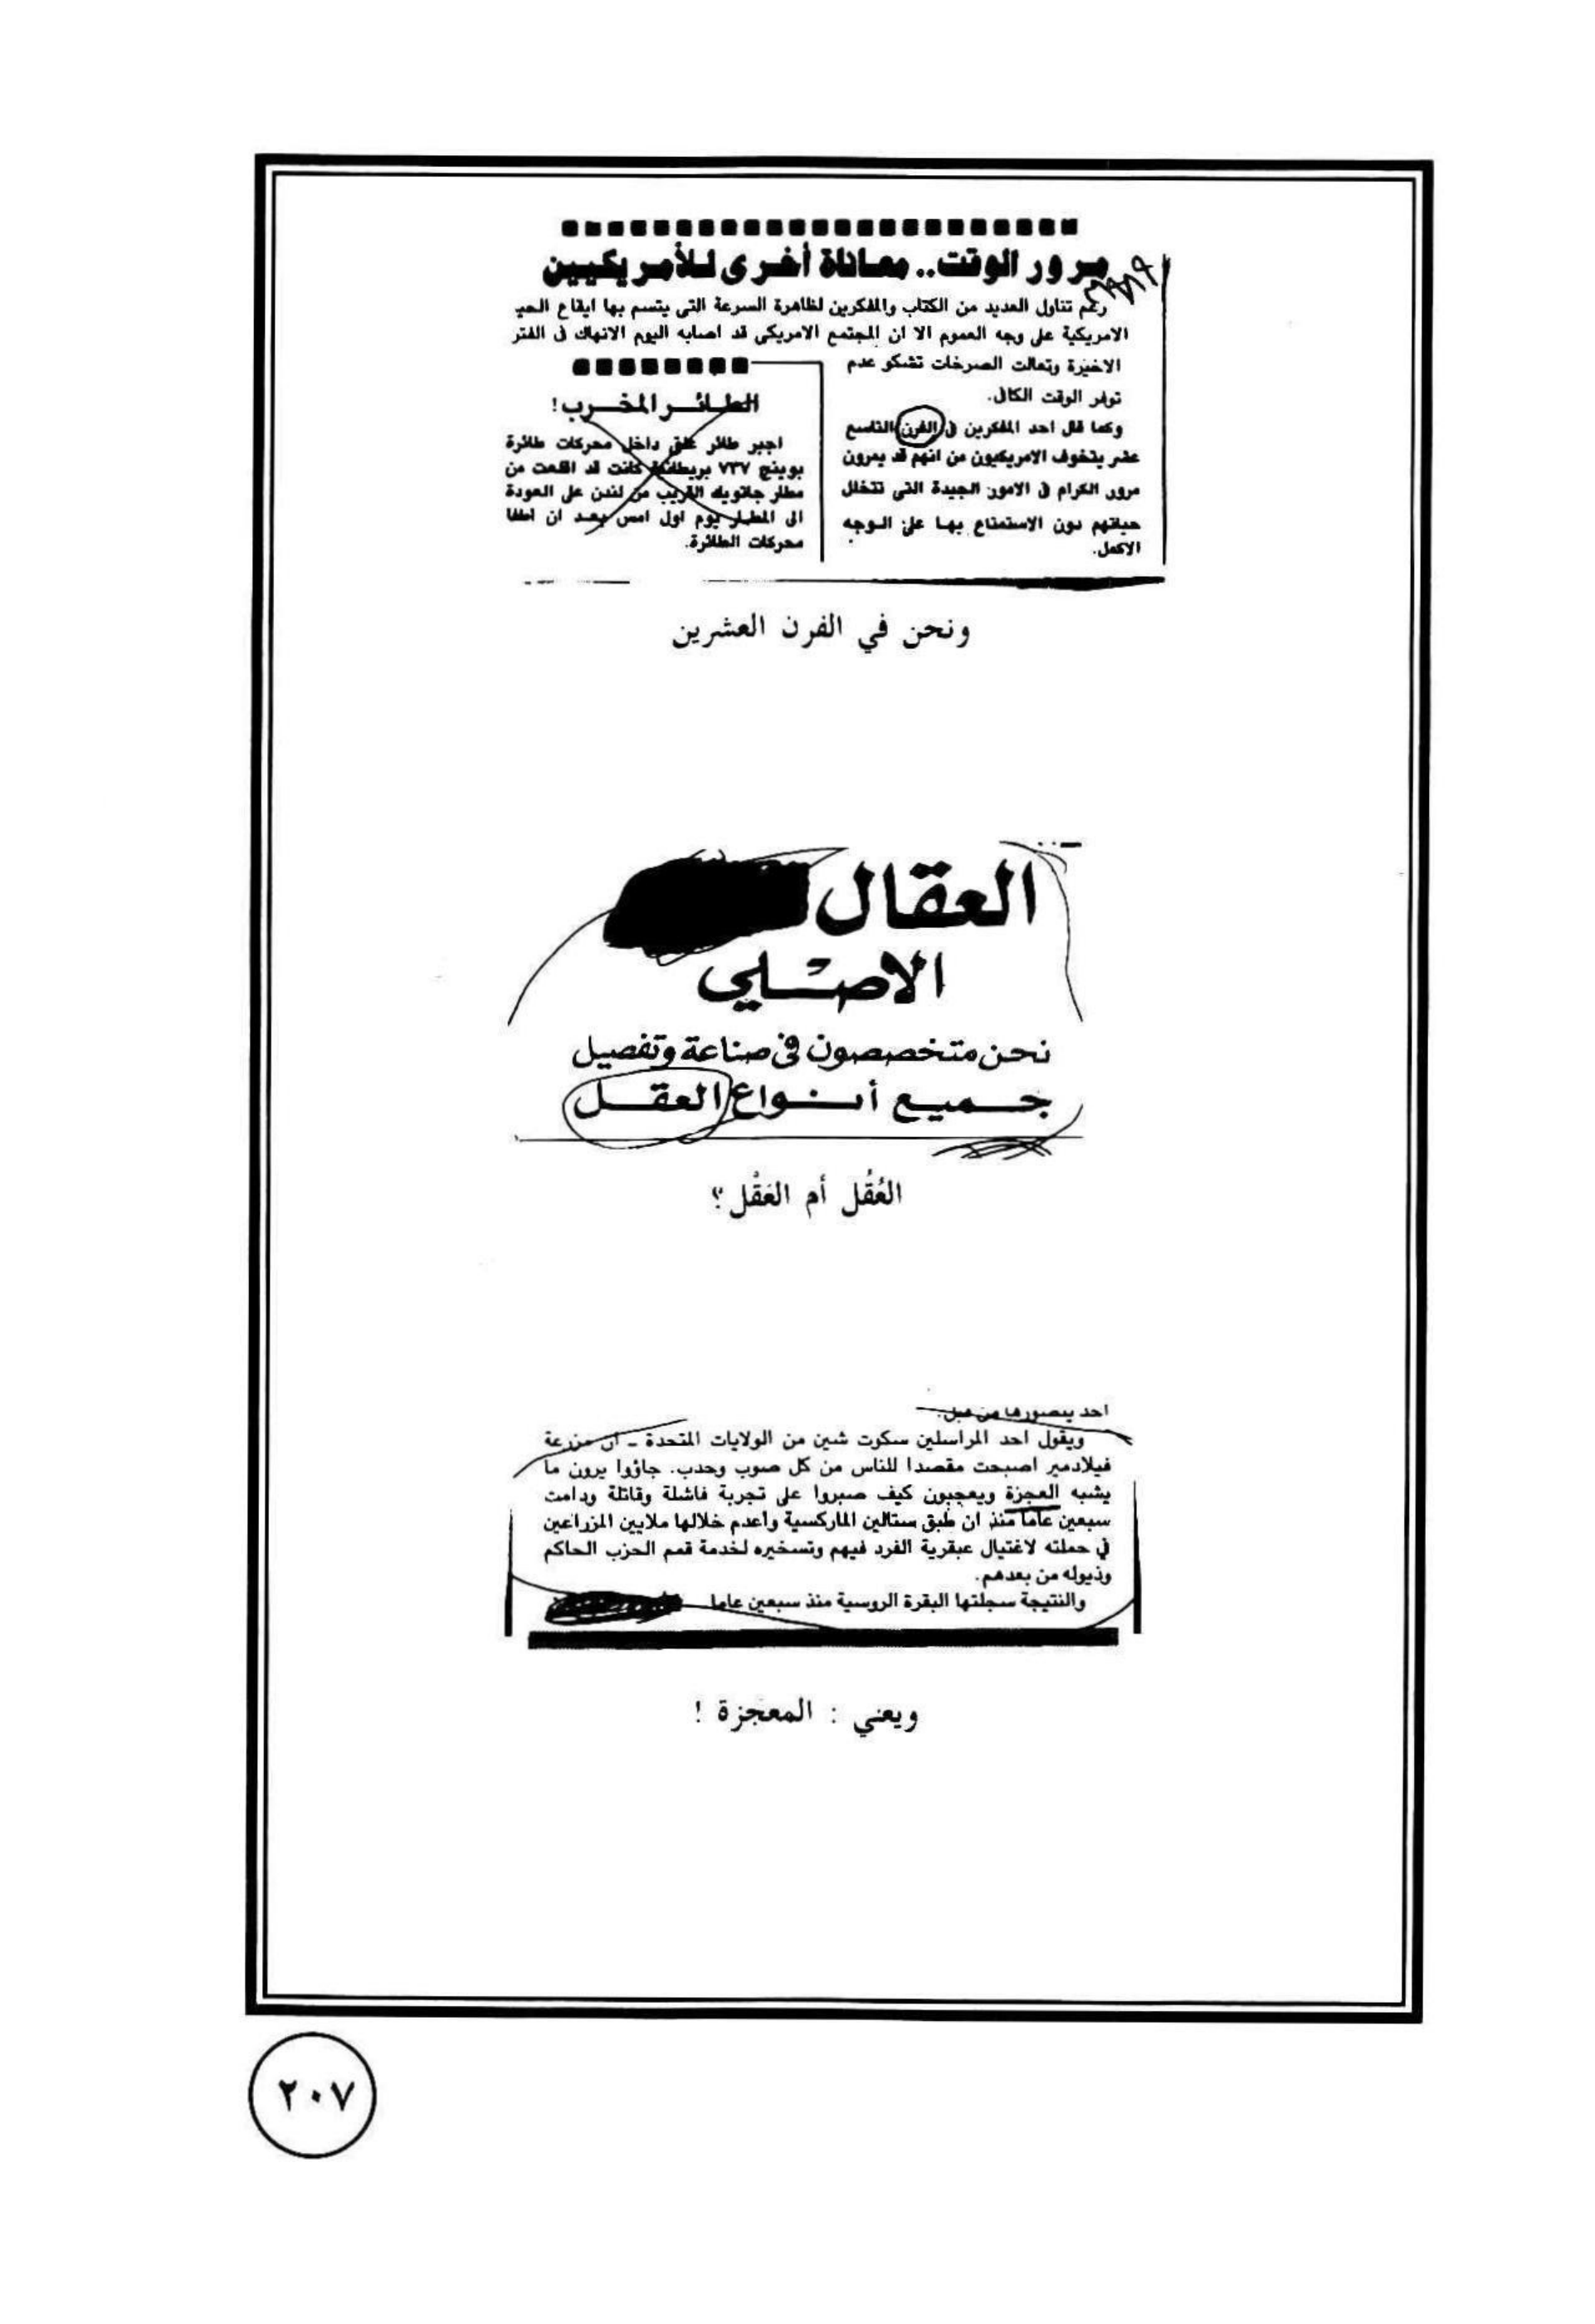 مرور الوقت.. معاناة أخرى للأمريكيين
رغم تناول العديد من الكتاب والمفكرين لظاهرة السرعة التي يتسم بها ايقاع الحيـ
الامريكية على وجه العموم الا ان المجتمع الامريكي قد اصابه اليوم الانهاك في الفتر
الاخيرة وتعالت الصرخات تشكو عدم
توفر الوقت الكافي.
وكما قال احد المفكرين في الفرن التاسع
عشر يتخوف الامريكيون من انهم قد يمرون
مرور الكرام في الامور الجيدة التي تتخلل
حياتهم دون الاستمتاع بها على الوجه
الاكمل.
الطائر المخرب!
اجبر طائر علق داخل محركات طائرة
بوينج ٧٣٧ بريطانية كانت قد اقلعت من
مطار جاتويك القريب من لندن على العودة
الى المطار يوم اول امس بعد ان اطفا
محركات الطائرة.
ونحن في الفرن العشرين
العقال
الاصلي
نحن متخصصون في صناعة وتفصيل
جميع أنواع العقل
العُقُل أم العَقْل؟
احد يتصورها من قبل.
ويقول احد المراسلين سكوت شين من الولايات المتحدة - ان مزرعة
فيلادمير اصبحت مقصدا للناس من كل صوب وحدب. جاؤوا يرون ما
يشبه العجزة ويعجبون كيف صبروا على تجربة فاشلة وقاتلة ودامت
سبعين عاما منذ ان طبق ستالين الماركسية وأعدم خلالها ملايين المزراعين
في حملته لاغتيال عبقرية الفرد فيهم وتسخيره لخدمة قمم الحزب الحاكم
وذيوله من بعدهم.
والنتيجة سجلتها البقرة الروسية منذ سبعين عاما
ويعني : المعجزة !
٢٠٧